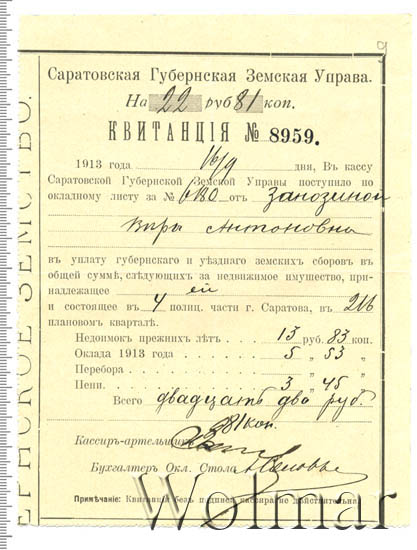 9
Саратовская Губернская Земская Управа.
На 22 руб 81 коп.
КВИТАНЦІЯ № 8959.
1913 года 16/9 дня, Въ кассу
Саратовской Губернской Земской Управы поступило по
окладному листу за № 6180 отъ Занозиной
Вѣры Антоновны
въ уплату губернскаго и уѣзднаго земскихъ сборовъ въ
общей суммѣ, слѣдующихъ за недвижимое имущество, при-
надлежащее ей
и состоящее въ 4 полиц. части г. Саратова, въ 216
плановомъ кварталѣ.
Недоимокъ прежнихъ лѣтъ . . 13 руб. 83 коп.
Оклада 1913 года . . . . . 5 „ 53 „
Перебора . . . . . . . . . „ „
Пени. . . . . . . . . . . 3 „ 45 „
Всего двадцать два руб.
81 коп.
Кассиръ-артельщикъ
Бухгалтеръ Окл. Стола
Примѣчаніе: Квитанція безъ подписи кассира не дѣйствительна.
ЕРНСКОЕ ЗЕМСТВО.
Wolmar